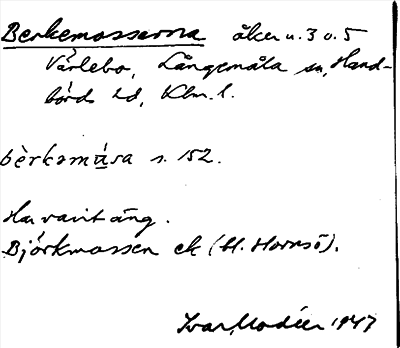 Berkemosserna åker n. 3 o. 5
Värlebo, Långemåla sn, Hand-
börds hd, Klm. l.
bèrkəmása s. 152.
Har varit äng.
Björkmossen ek (bl. Hornsö).
Ivar Modéer 1947